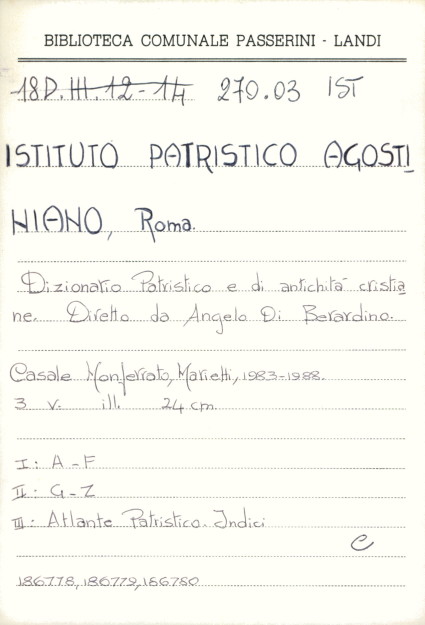 BIBLIOTECA COMUNALE PASSERINI - LANDI
18D.III.12-14 270.03 IST
ISTITUTO PATRISTICO AGOSTI
NIANO, Roma.
Dizionario Patristico e di antichità cristia
ne. Diretto da Angelo Di Berardino.
Casale Monferrato, Marietti, 1983-1988.
3 v. ill. 24 cm.
I: A-F
II: G-Z
III: Atlante Patristico. Indici
C
186778, 186779, 186780